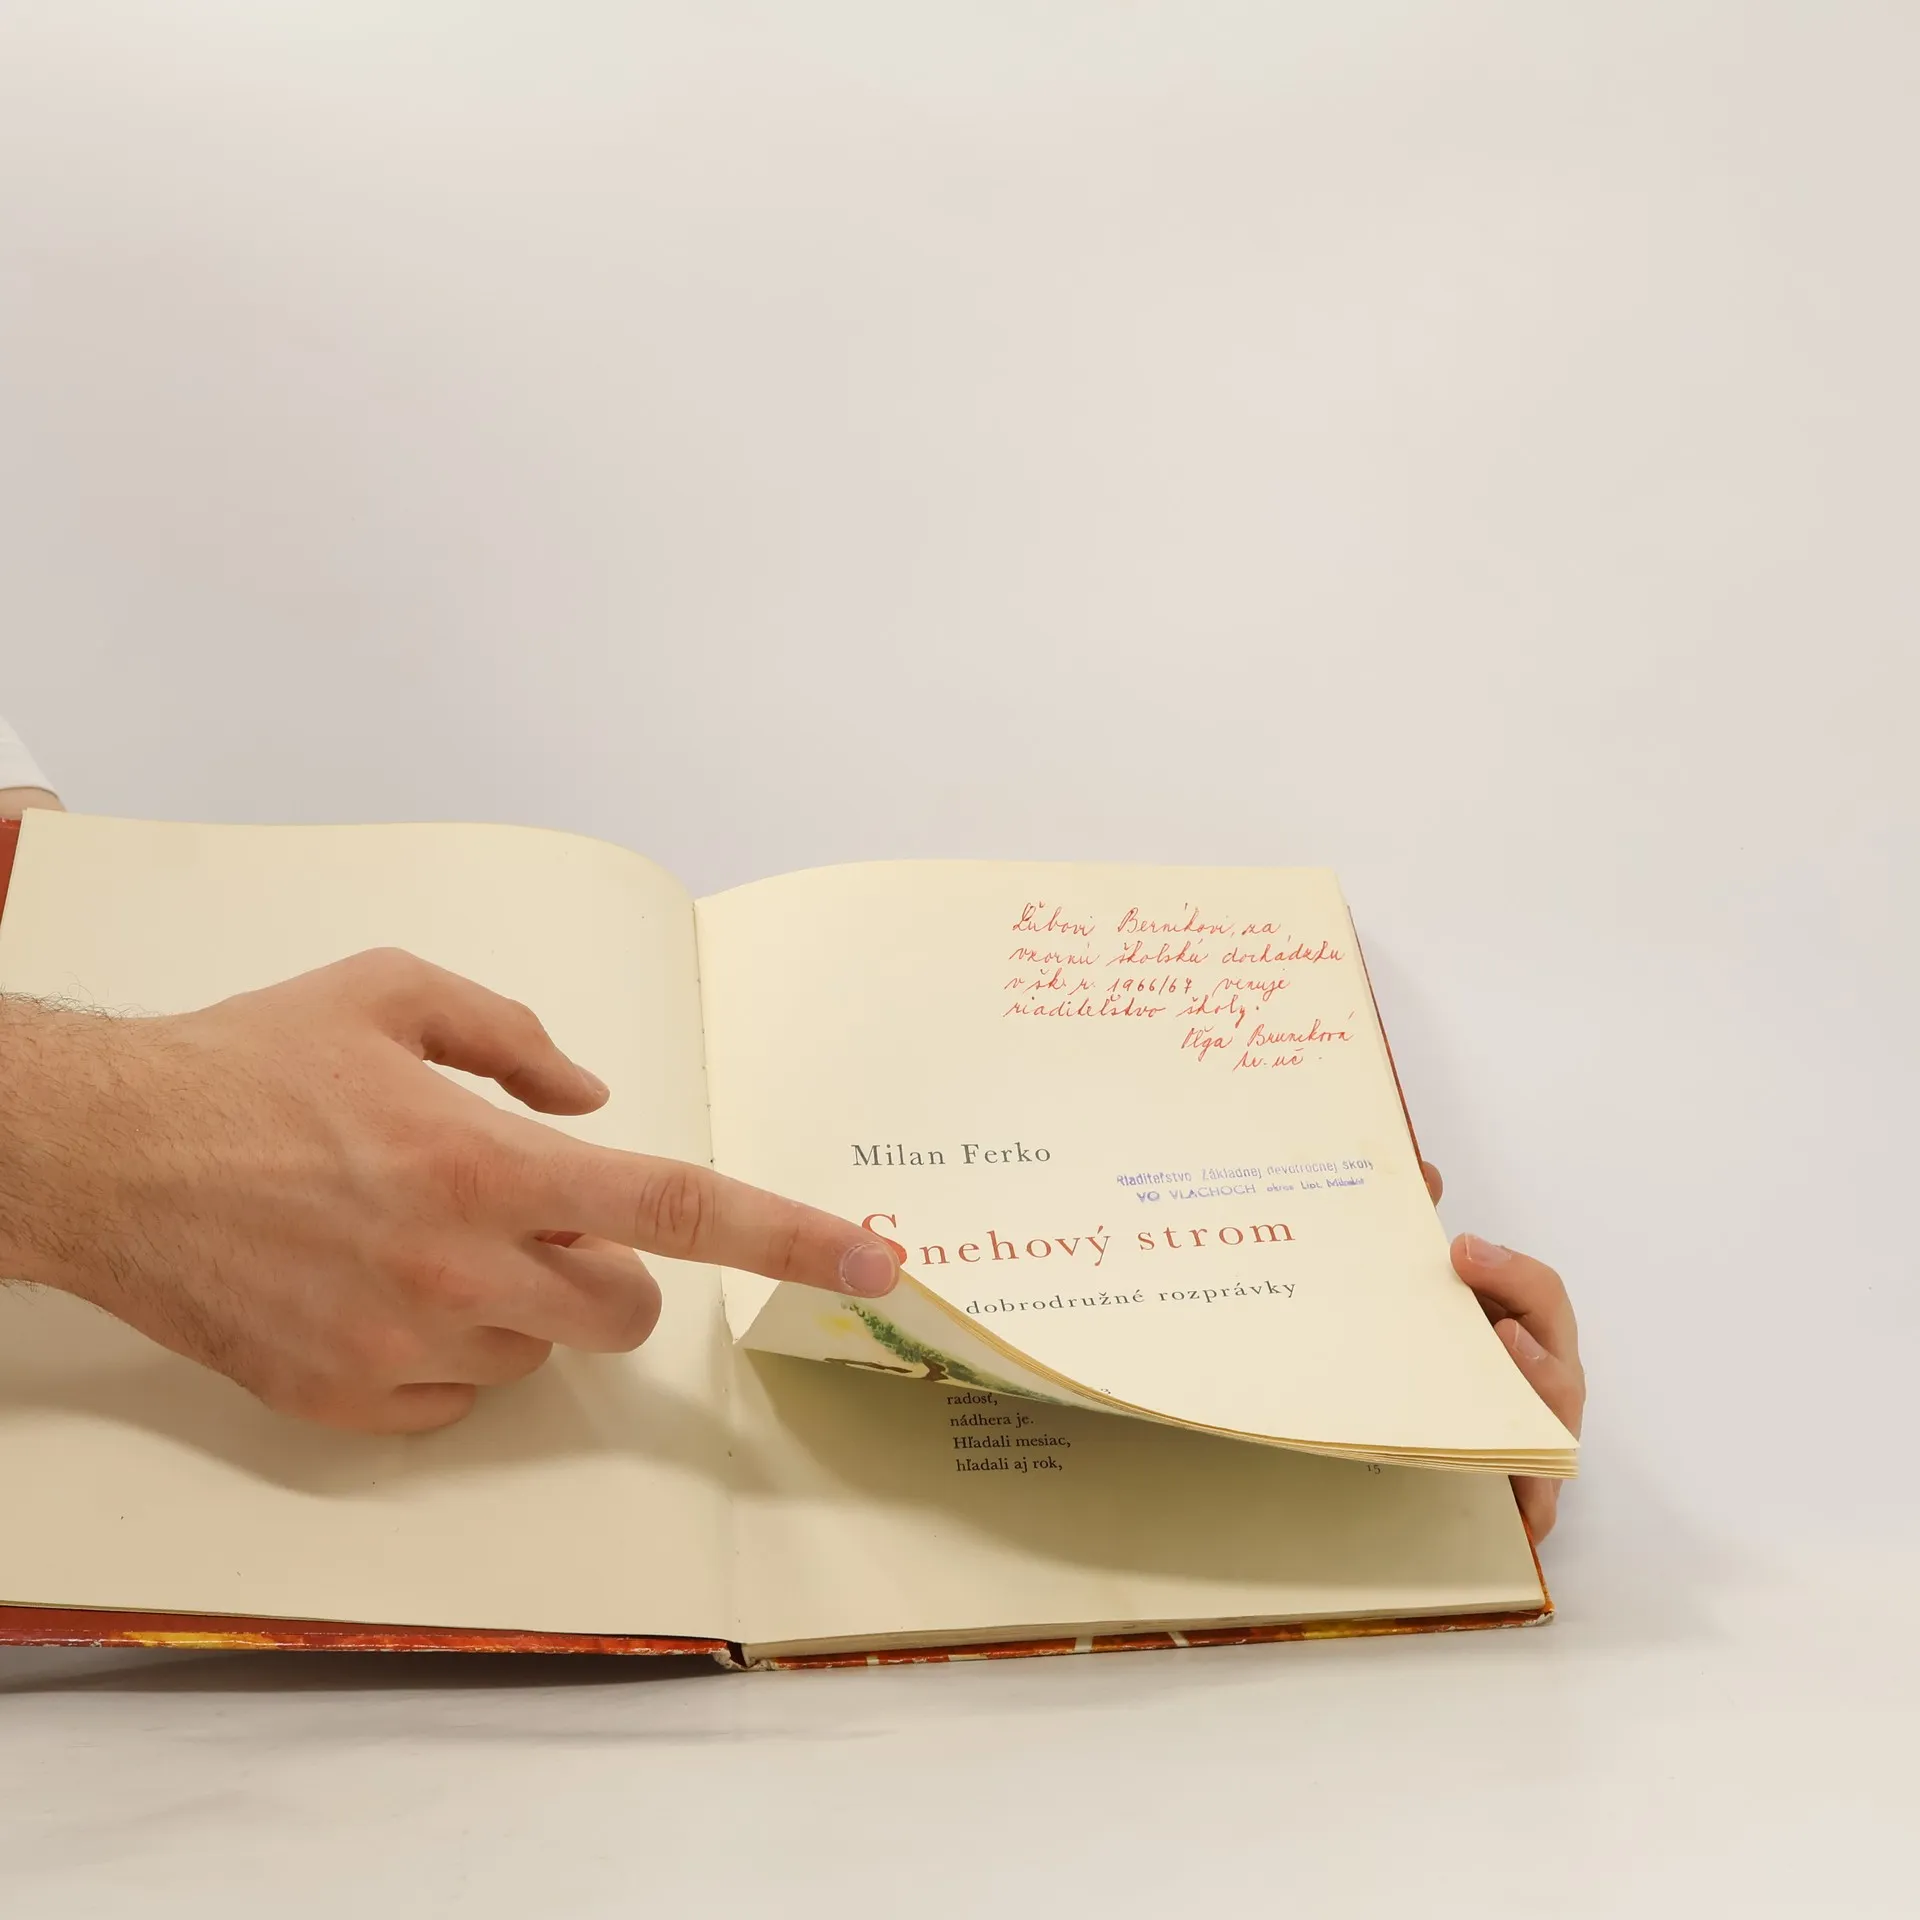 Ľubovi Berníkovi, za
vzornú školskú dochádzku
v šk. r. 1966/67 venuje
riaditeľstvo školy.
Oľga Bruncková
tr. uč.
Milan Ferko
Riaditeľstvo Základnej deväťročnej školy
VO VLACHOCH okres Lipt. Mikuláš
Snehový strom
dobrodružné rozprávky
radosť,
nádhera je.
Hľadali mesiac,
hľadali aj rok,
15